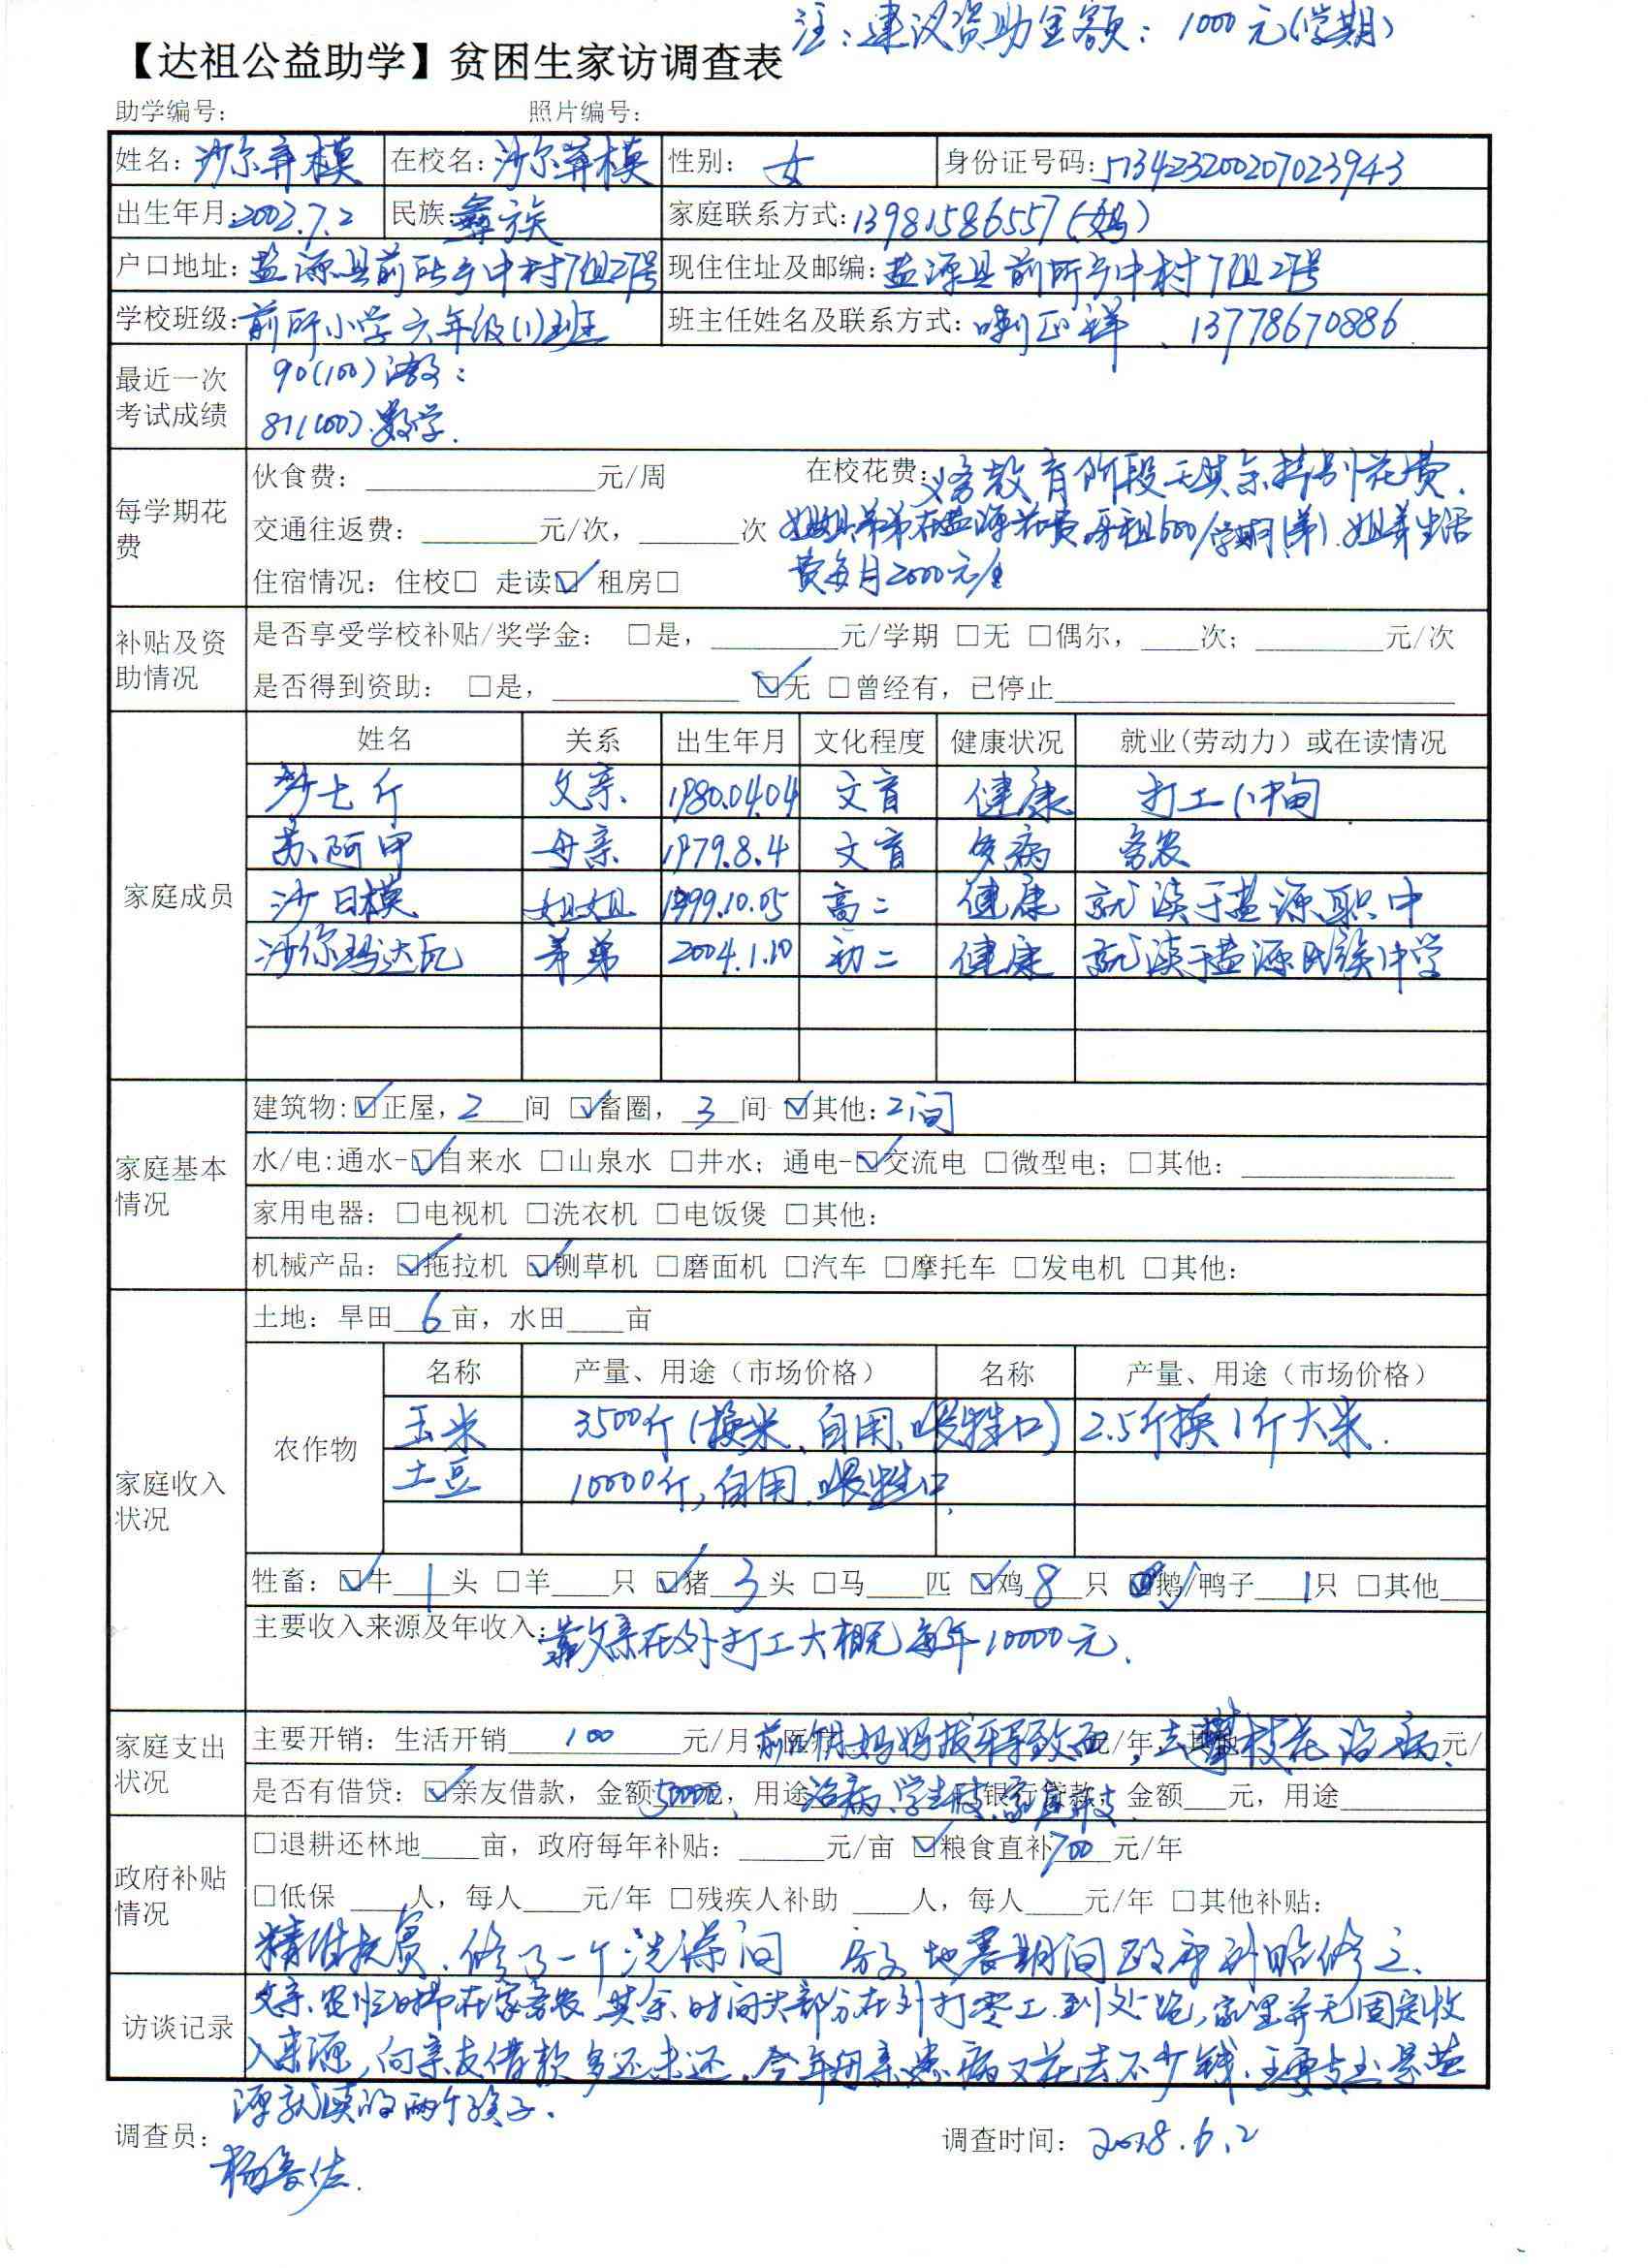 注:建议资助金额:1000元(学期)
【达祖公益助学】贫困生家访调查表
助学编号: 照片编号:
姓名:沙尔弄模 在校名:沙尔弄模 性别: 女 身份证号码:513423200207023943
出生年月:2002.7.2 民族:彝族 家庭联系方式:13981586557(妈)
户口地址:盐源县前所乡中村7组27号 现住住址及邮编:盐源县前所乡中村7组27号
学校班级:前所小学六年级(1)班 班主任姓名及联系方式:喇正祥、13778670886
最近一次考试成绩
90(100)语文:
81(100).数学.
每学期花费
伙食费:________元/周 在校花费:义务教育阶段无其余特别花费.
交通往返费:______元/次,______次 姐姐、弟弟在盐源花费房租600/学期(弟).姐弟生活
住宿情况:住校□ 走读☑ 租房□ 费每月2000元/
补贴及资助情况
是否享受学校补贴/奖学金: □是,______元/学期 □无 □偶尔,___次;______元/次
是否得到资助: □是,________ ☑无 □曾经有,已停止________
家庭成员
姓名 关系 出生年月 文化程度 健康状况 就业(劳动力)或在读情况
沙七斤 父亲 1980.04.04 文盲 健康 打工(中甸
苏阿甲 母亲 1979.8.4 文盲 多病 务农
沙日模 姐姐 1999.10.05 高二 健康 就读于盐源职中
沙尔玛达瓦 弟弟 2004.1.10 初二 健康 就读于盐源民族中学
家庭基本情况
建筑物:☑正屋,2间 ☑畜圈,3间 ☑其他:2间
水/电:通水-☑自来水 □山泉水 □井水;通电-☑交流电 □微型电;□其他:________
家用电器:□电视机 □洗衣机 □电饭煲 □其他:
机械产品:☑拖拉机 ☑铡草机 □磨面机 □汽车 □摩托车 □发电机 □其他:
家庭收入状况
土地:旱田6亩,水田___亩
农作物
名称 产量、用途(市场价格) 名称 产量、用途(市场价格)
玉米 3500斤(换米、自用、喂牲口)2.5斤换1斤大米.
土豆 10000斤,自用、喂牲口.
牲畜:☑牛1头 □羊___只 ☑猪3头 □马___匹 ☑鸡8只 ☑鹅/鸭子1只 □其他___
主要收入来源及年收入:靠父亲在外打工大概每年10000元.
家庭支出状况
主要开销:生活开销100元/月,医 元/年,其他 元/
前 妈妈拔牙导致 ,去攀枝花治病.
是否有借贷:☑亲友借款,金额50000元,用途治病、学生 、家庭开支 □银行贷款,金额___元,用途______
政府补贴情况
□退耕还林地___亩,政府每年补贴:_____元/亩 ☑粮食直补700元/年
□低保___人,每人___元/年 □残疾人补助___人,每人___元/年 □其他补贴:
精准扶贫、修了一个洗澡间 地震期间政府补贴修之.
访谈记录
父亲农忙时节在家务农,其余时间大部分在外打零工.到处跑,家里并无固定收
入来源,向亲友借款多还未还.今年母亲患病又花去不少钱.主要支出是盐
源就读的两个孩子.
调查员: 调查时间:2018.6.2